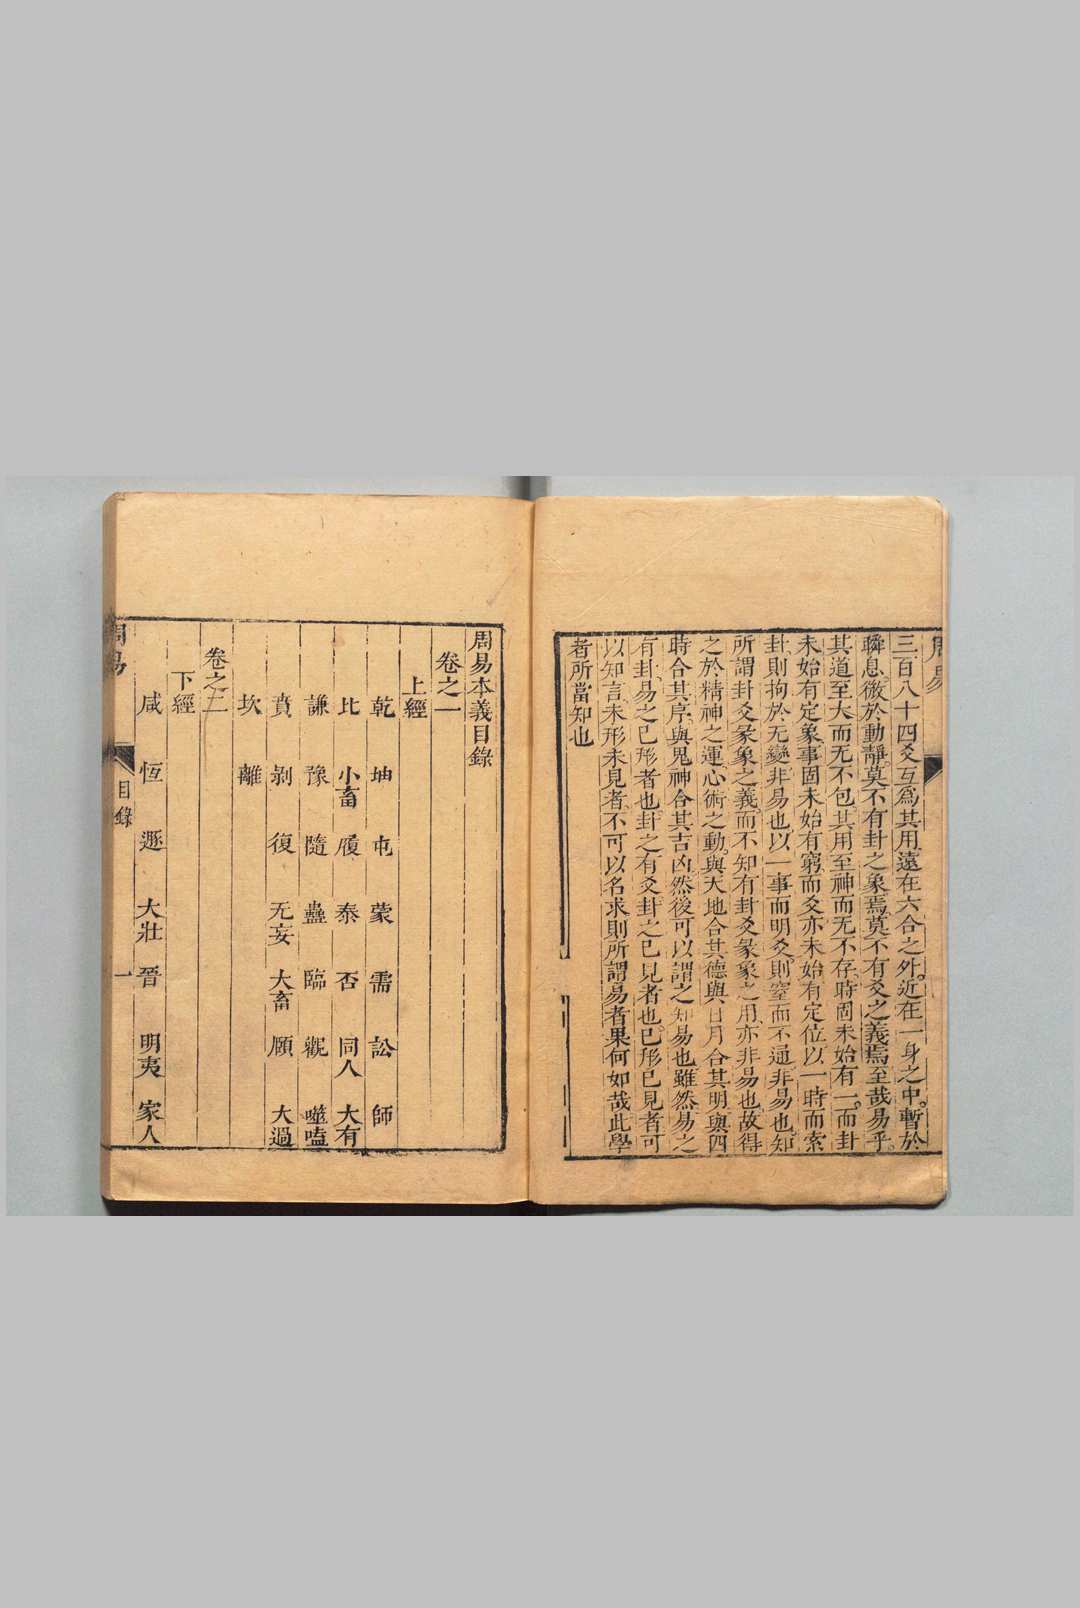 周易
三百八十四爻互爲其用遠在六合之外近在一身之中暫於
瞬息微於動靜莫不有卦之象焉莫不有爻之義焉至哉易乎
其道至大而无不包其用至神而无不存時固未始有一而卦
未始有定象事固未始有窮而爻亦未始有定位以一時而索
卦則拘於无變非易也以一事而明爻則窒而不通非易也知
所謂卦爻彖象之義而不知有卦爻彖象之用亦非易也故得
之於精神之運心術之動與天地合其德與日月合其明與四
時合其序與鬼神合其吉凶然後可以謂之知易也雖然易之
有卦易之已形者也卦之有爻卦之已見者也已形已見者可
以知言未形未見者不可以名求則所謂易者果何如哉此學
者所當知也
周易本義目錄
卷之一
上經
乾 坤 屯 蒙 需 訟 師
比 小畜 履 泰 否 同人 大有
謙 豫 隨 蠱 臨 觀 噬嗑
賁 剝 復 无妄 大畜 頤 大過
坎 離
卷之二
下經
咸 恆 遯 大壯 晉 明夷 家人
周易 目錄 一